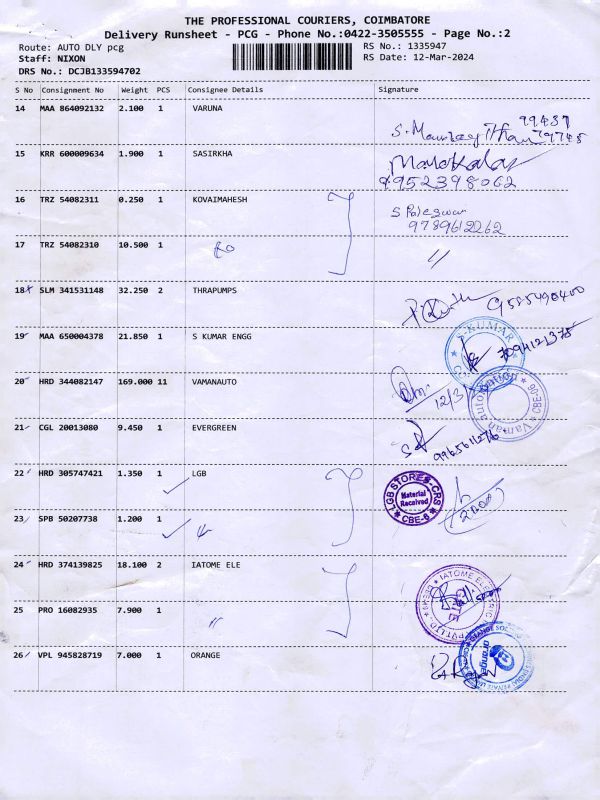 THE PROFESSIONAL COURIERS, COIMBATORE
Delivery Runsheet - PCG - Phone No.:0422-3505555 - Page No.:2
Route: AUTO DLY pcg RS No.: 1335947
Staff: NIXON RS Date: 12-Mar-2024
DRS No.: DCJB133594702
S No Consignment No Weight PCS Consignee Details Signature
14 MAA 864092132 2.100 1 VARUNA
99437
79745
15 KRR 600009634 1.900 1 SASIRKHA
Manokalar
9952398062
16 TRZ 54082311 0.250 1 KOVAIMAHESH
9789612262
17 TRZ 54082310 10.500 1
"
18 SLM 341531148 32.250 2 THRAPUMPS
9585490400
19 MAA 650004378 21.850 1 S KUMAR ENGG
S-KUMAR
7094121375
20 HRD 344082147 169.000 11 VAMANAUTO
12/3/
Vaman automation CBE-06
21 CGL 20013080 9.450 1 EVERGREEN
22 HRD 305747421 1.350 1 LGB
LGB STORES-CRS
Material
Received
CBE-6
23 SPB 50207738 1.200 1
24 HRD 374139825 18.100 2 IATOME ELE
IATOME ELECTRIC
PVT LTD
25 PRO 16082935 7.900 1 "
26 VPL 945828719 7.000 1 ORANGE
orange